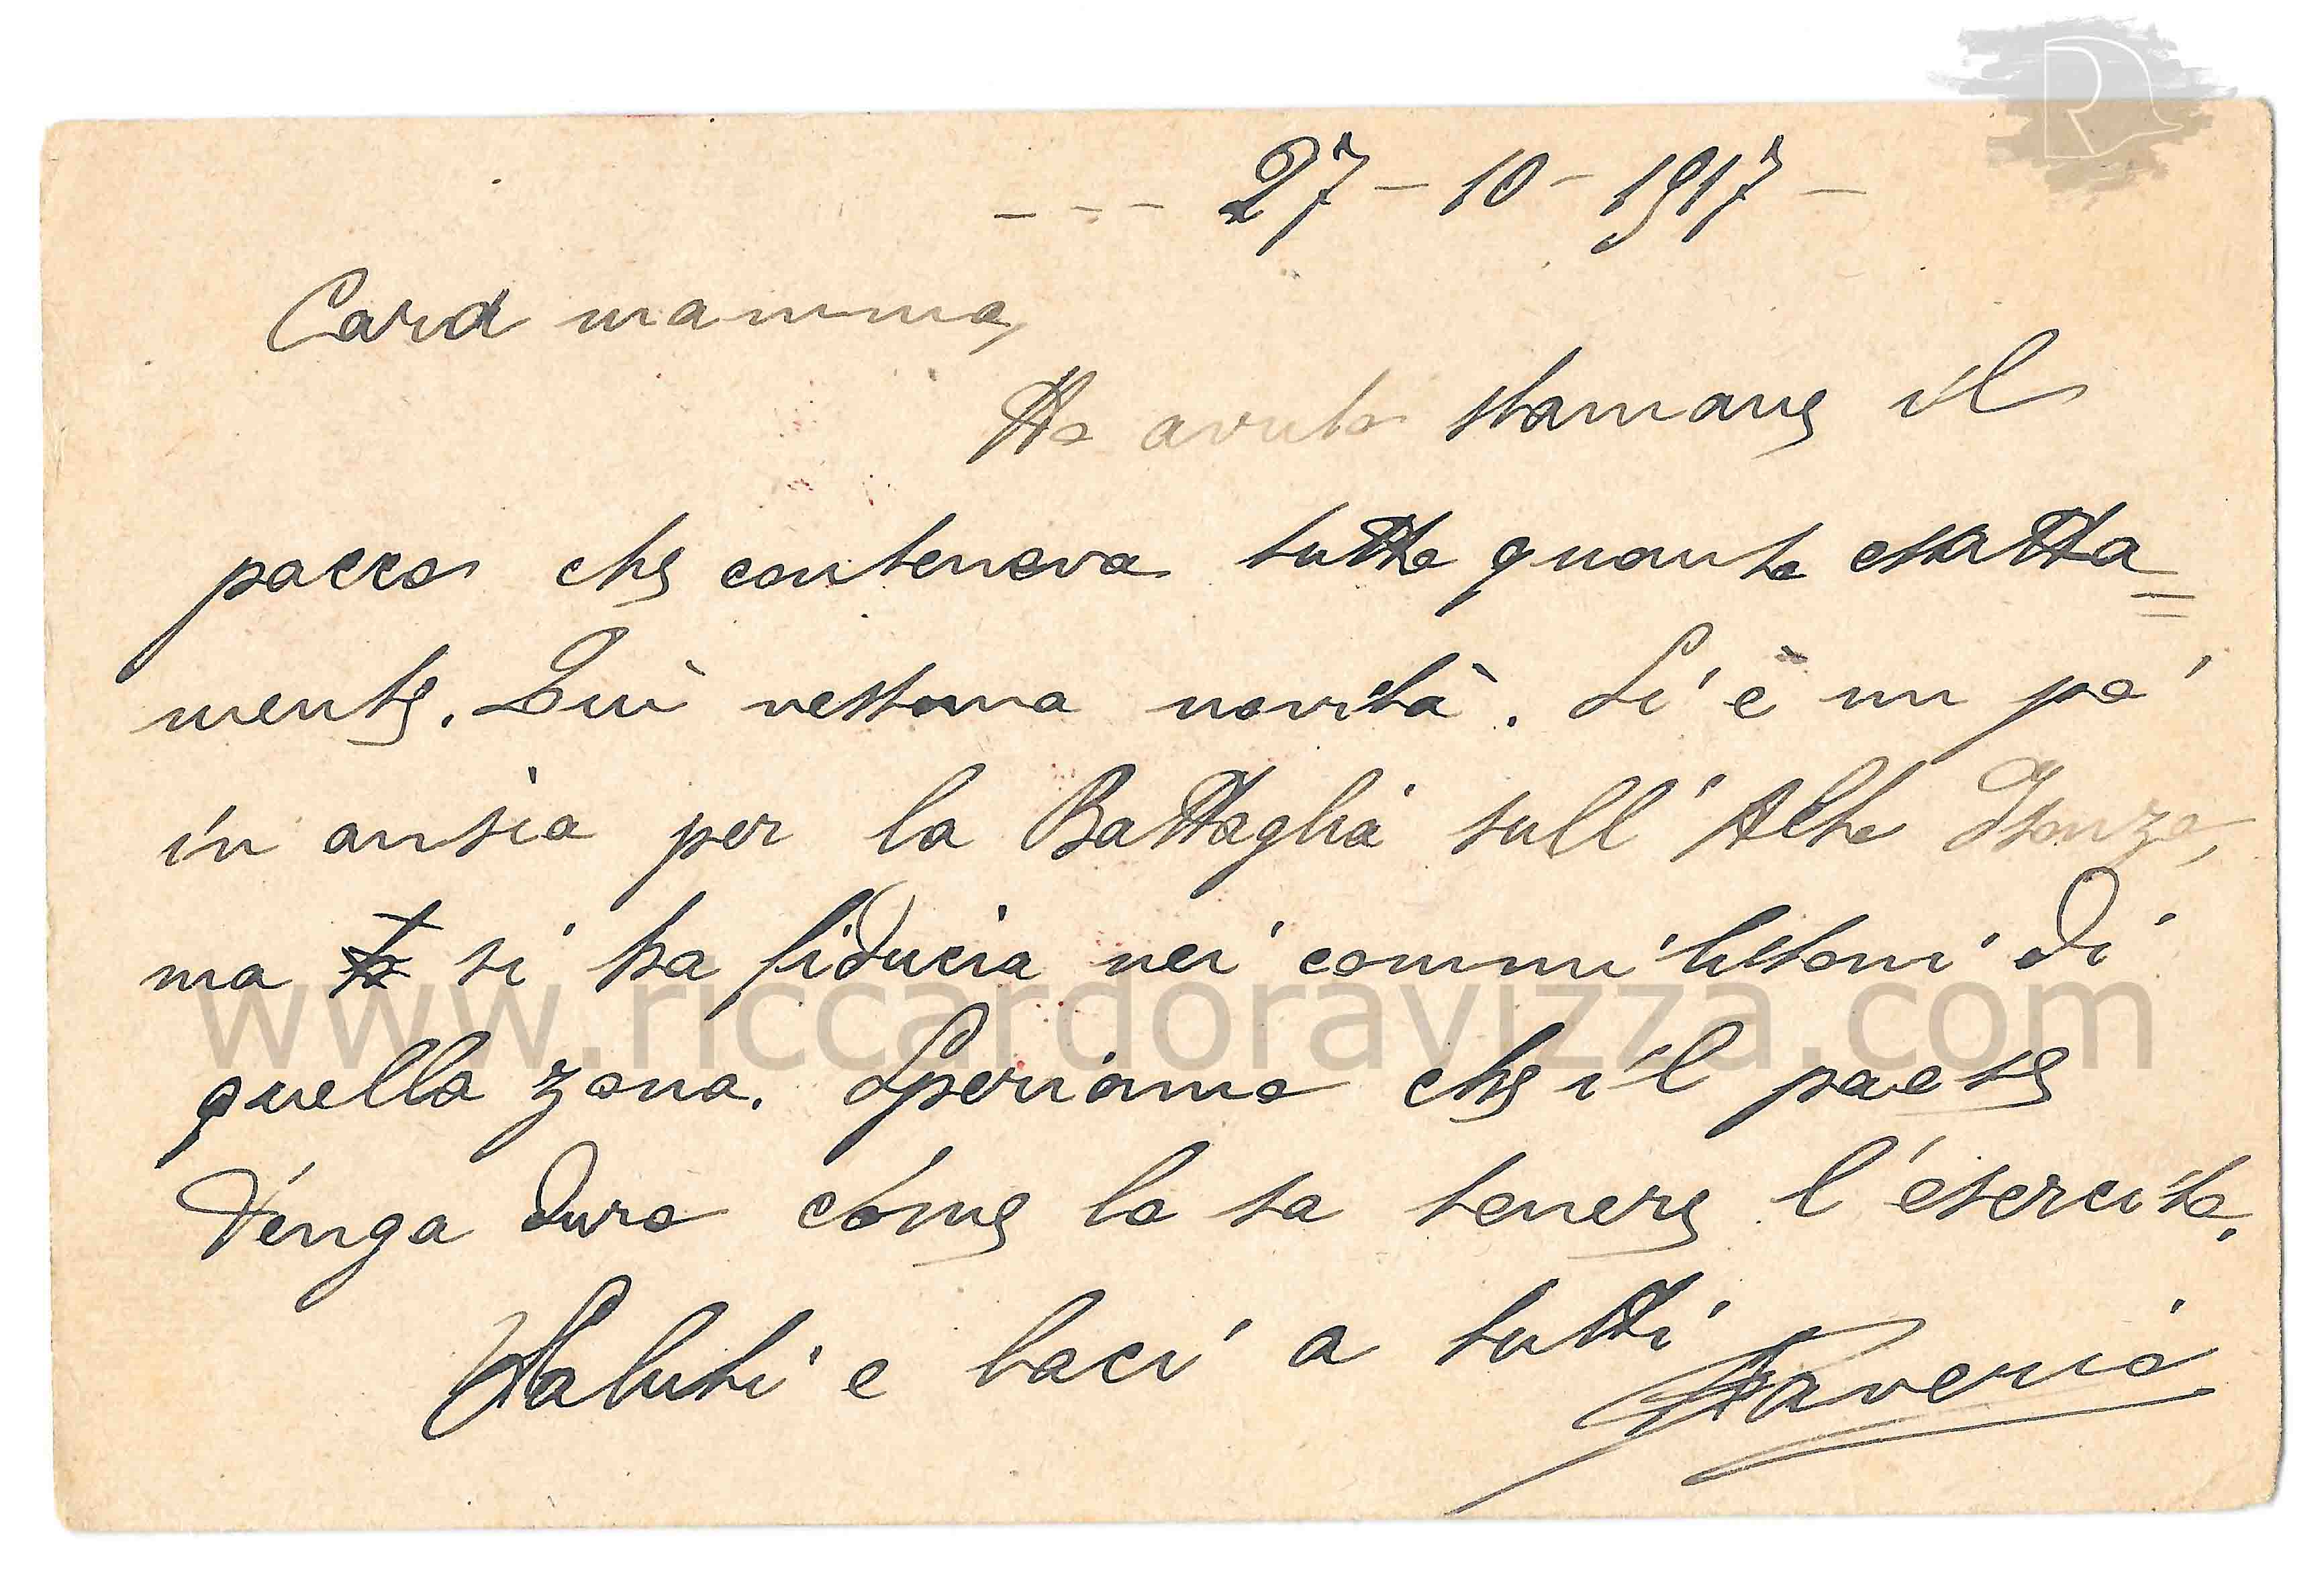 --- 27-10-1917-
Cara mamma,
Ho avuto stamane il
pacco che conteneva tutto quanto esatta=
mente. Quì nessuna novità. Si è un pò
in ansia per la Battaglia sull'Alto Isonzo,
ma si ha fiducia nei commilitoni di
quella zona. Speriamo che il paese
tenga duro come lo sa tenere l'esercito.
Saluti e baci a tutti
Saverio
www.riccardoravizza.com